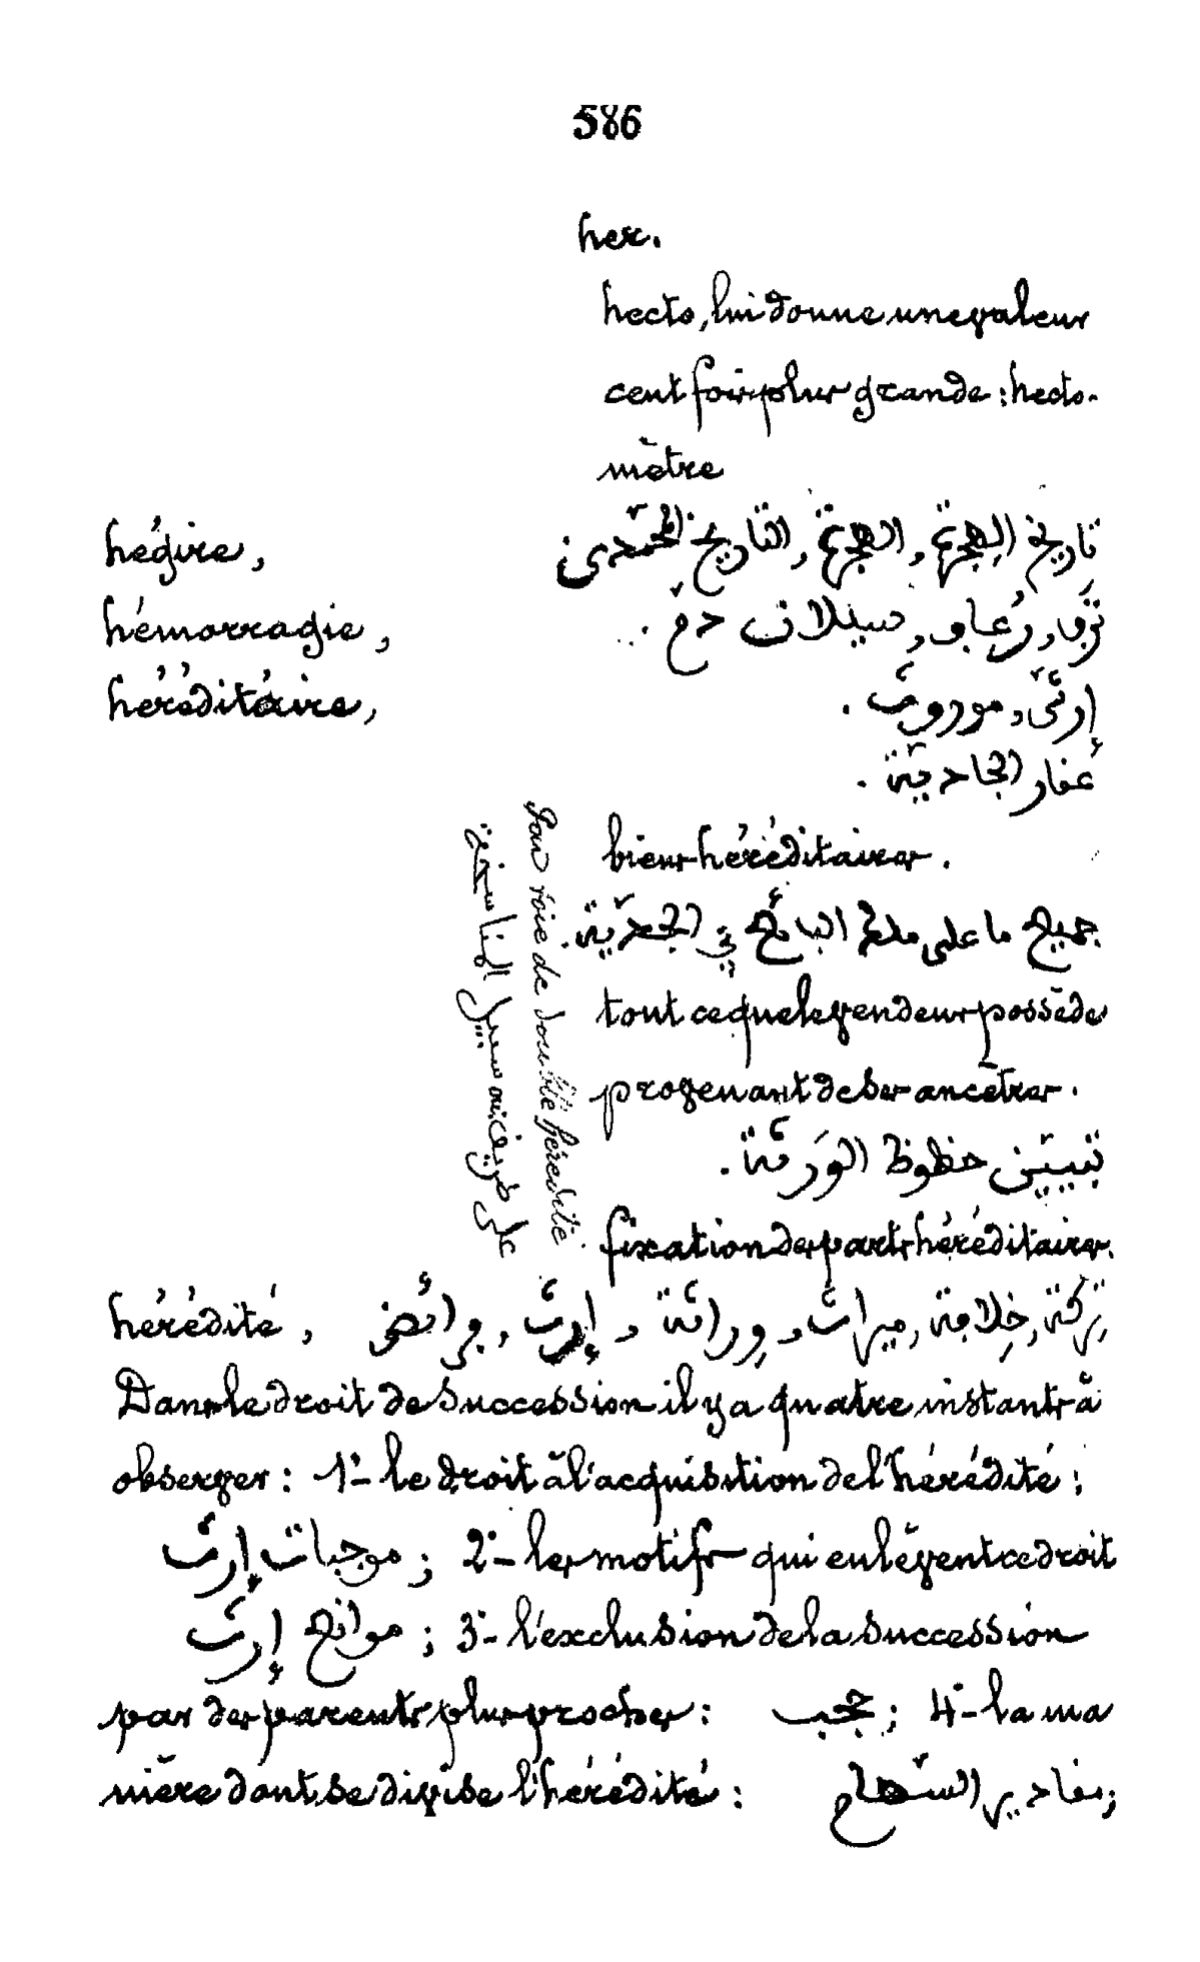 586
hec.
hecto, lui donne une valeur
cent fois plus grande : hecto-
mètre
hégire, تاريخ الهجرة, الهجرة, التاريخ المحمّدى
hémorragie, نزف, رُعاف, سيلان دمّ.
héréditaire, إرثىّ, موروث.
عقار الجادية.
biens héréditaires.
جميع ما على ملك البائع في الجدّية.
tout ce que le vendeur possède
provenant de ses ancêtres.
تبيين حظوظ الورثة.
fixation des parts héréditaires.
Par voie de double hérédité.
على طريق سبيل المناسخة
hérédité, تركة, خِلافة, ميراث, وِراثة, إرث, فرائض
Dans le droit de succession il y a quatre instants à
observer : 1º- le droit à l'acquisition de l'hérédité :
موجبات إرث ; 2º- les motifs qui enlèvent ce droit
موانع إرث ; 3º- l'exclusion de la succession
par des parents plus proches : حجب ; 4º- la ma
nière dont se divise l'hérédité : مقادير السّهام ;